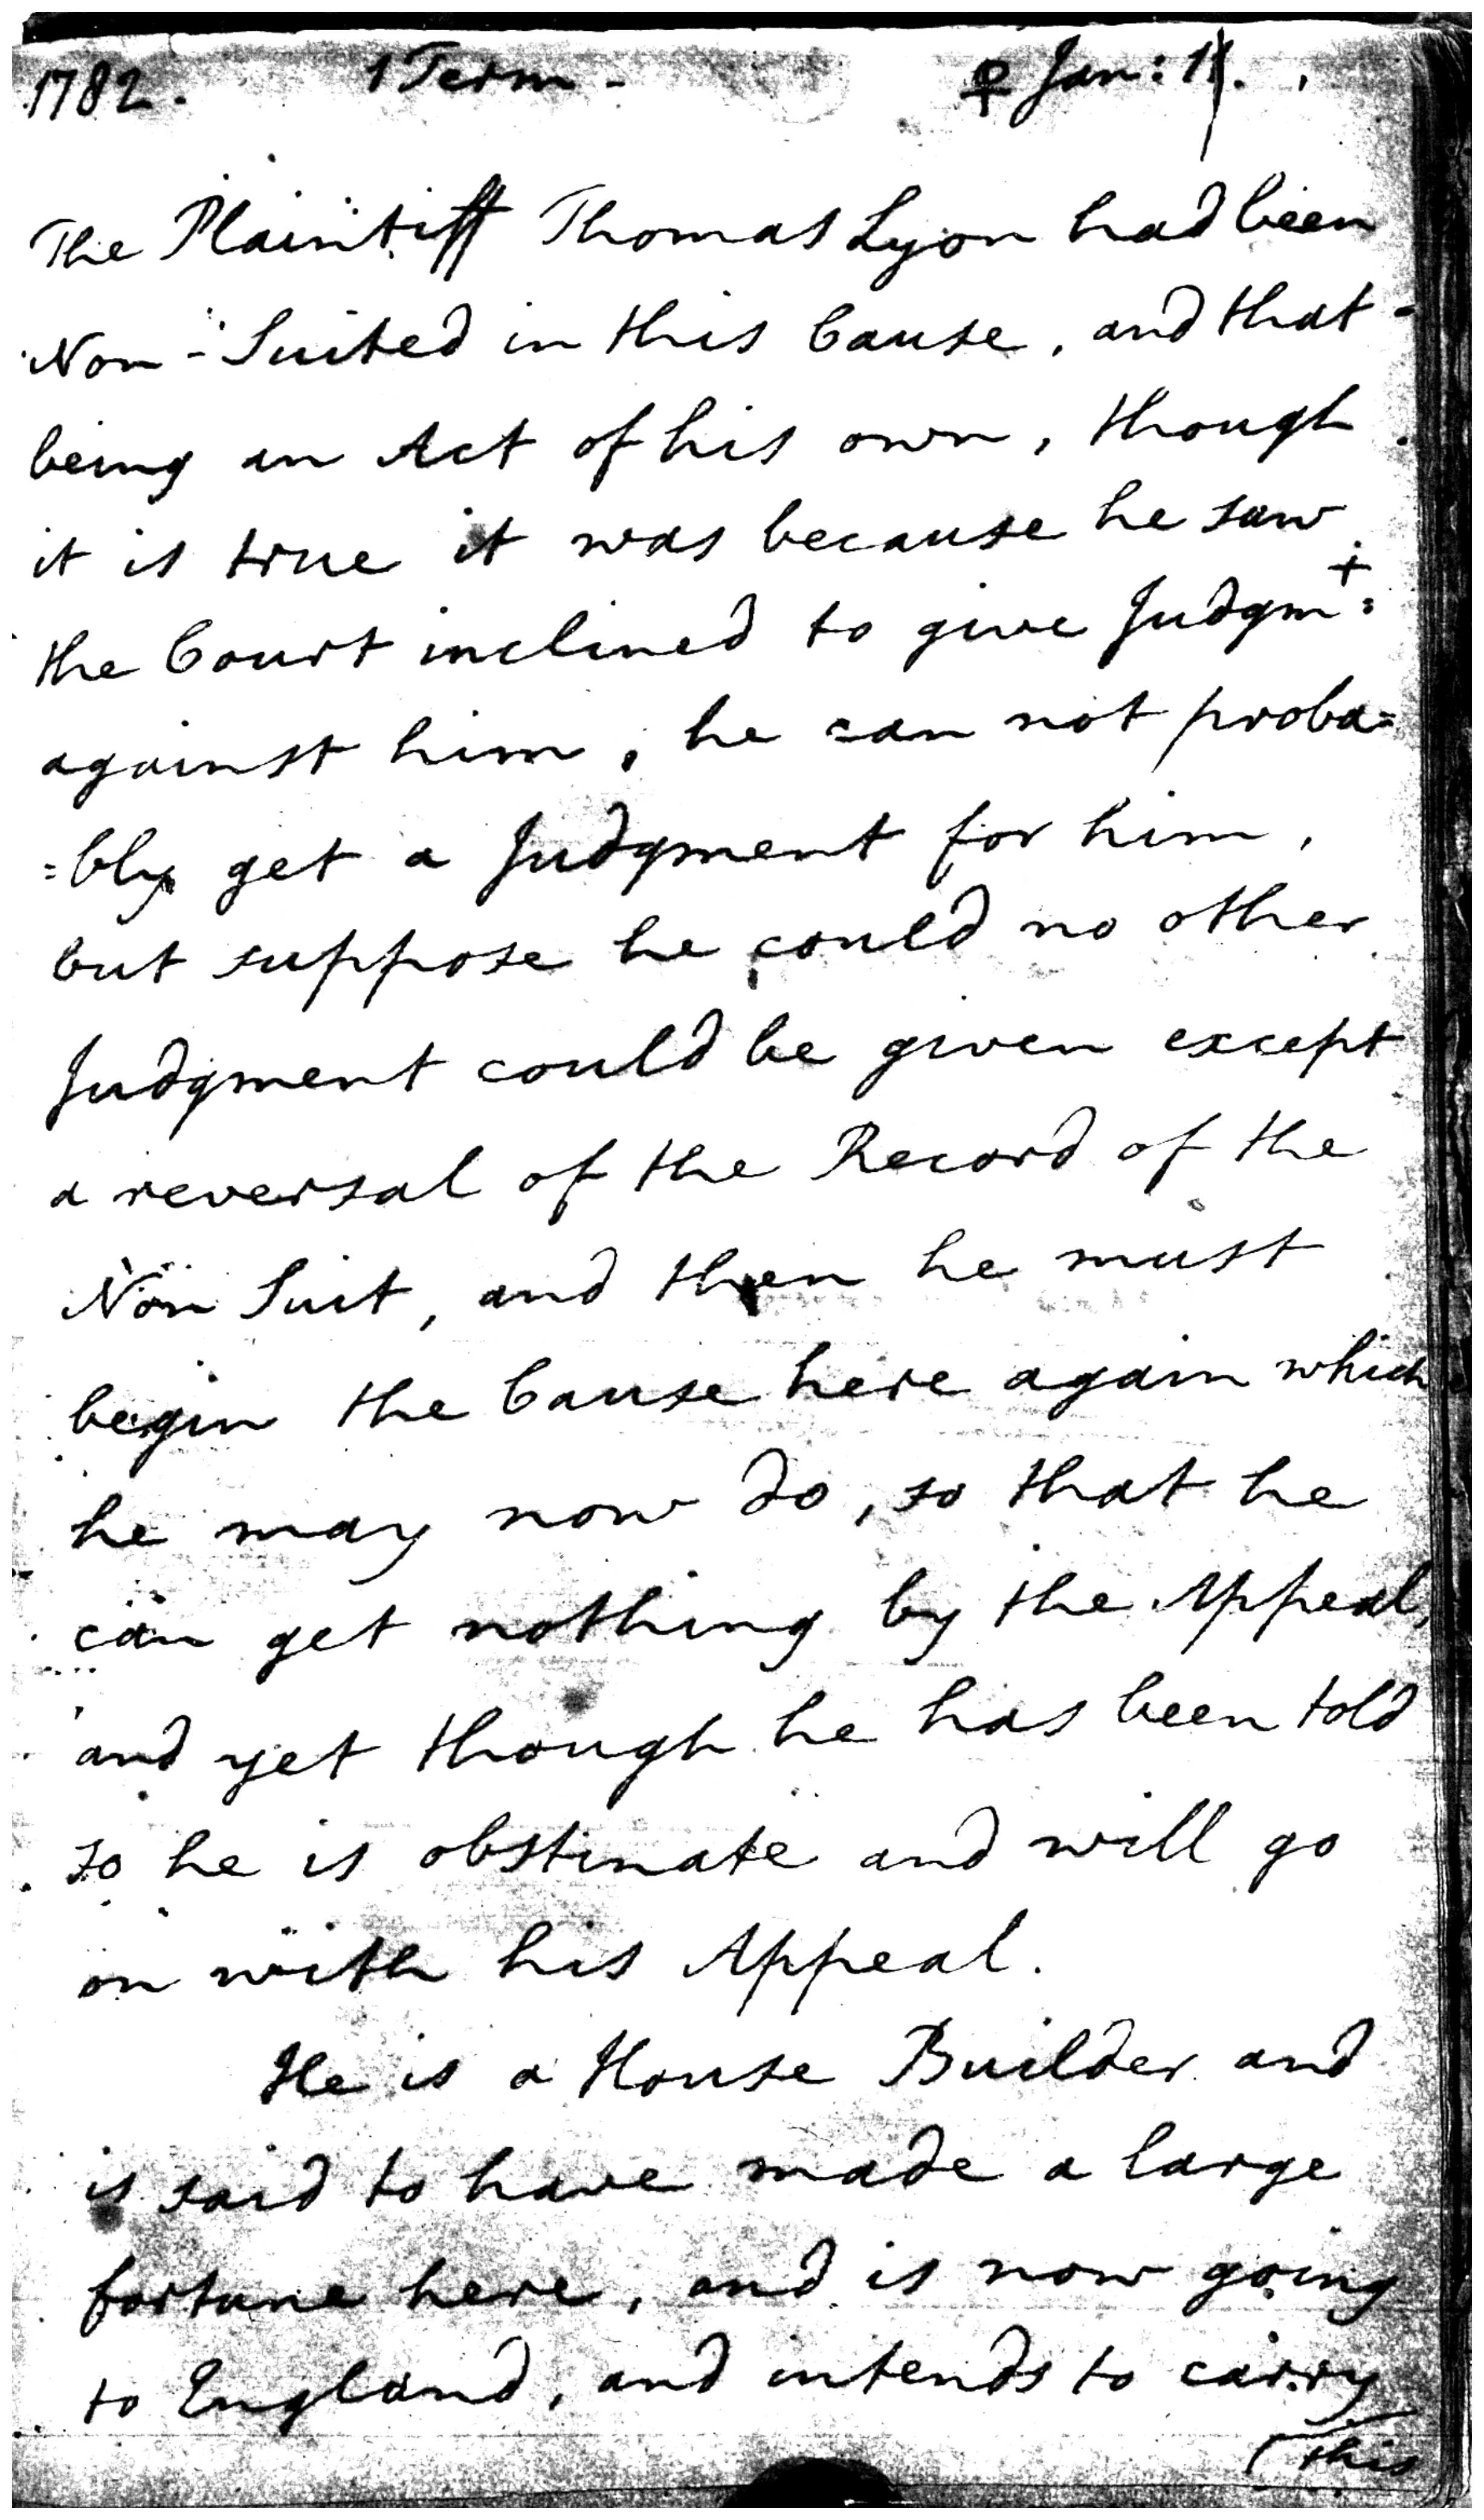 1782. 1 Term - ♀ Jan: 11.
The Plaintiff Thomas Lyon had been
Non-Suited in this Cause, and that
being an Act of his own, though
it is true it was because he saw
the Court inclined to give Judgmt:
against him, he can not proba=
=bly get a Judgment for him,
but suppose he could no other
Judgment could be given except
a reversal of the Record of the
Non Suit, and then he must
begin the Cause here again which
he may now do, so that he
can get nothing by the Appeal,
and yet though he has been told
so he is obstinate and will go
on with his Appeal.
He is a House Builder and
is said to have made a large
fortune here, and is now going
to England, and intends to carry
(this